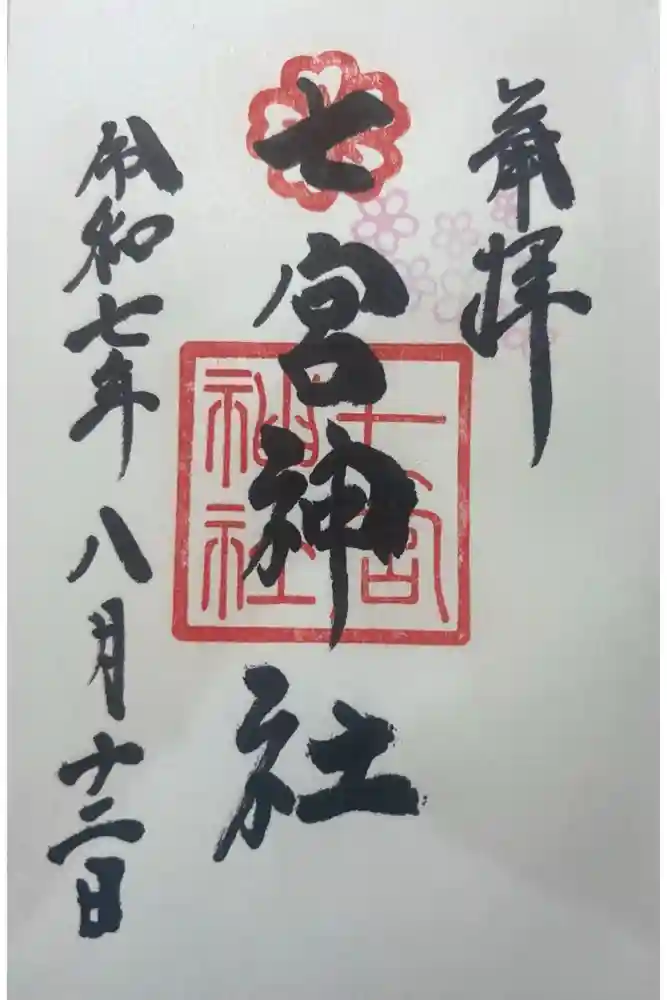 奉拝
七宮神社
七宮
神社
令和七年八月十二日